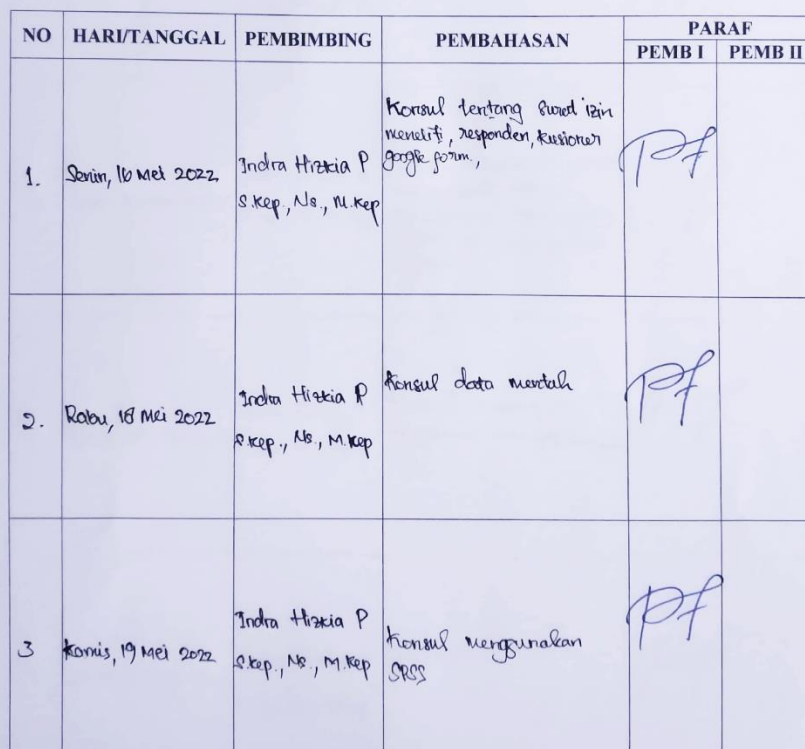 NO HARI/TANGGAL PEMBIMBING PEMBAHASAN PARAF
PEMB I PEMB II
1. Senin, 16 Mei 2022
Indra Hizkia P
S.Kep., Ns., M.Kep
Konsul tentang surat izin
meneliti, responden, kusioner
google form,
2. Rabu, 18 Mei 2022
Indra Hizkia P
S.Kep., Ns., M.Kep
Konsul data mentah
3 Kamis, 19 Mei 2022
Indra Hizkia P
S.Kep., Ns., M.Kep
Konsul menggunakan
SPSS